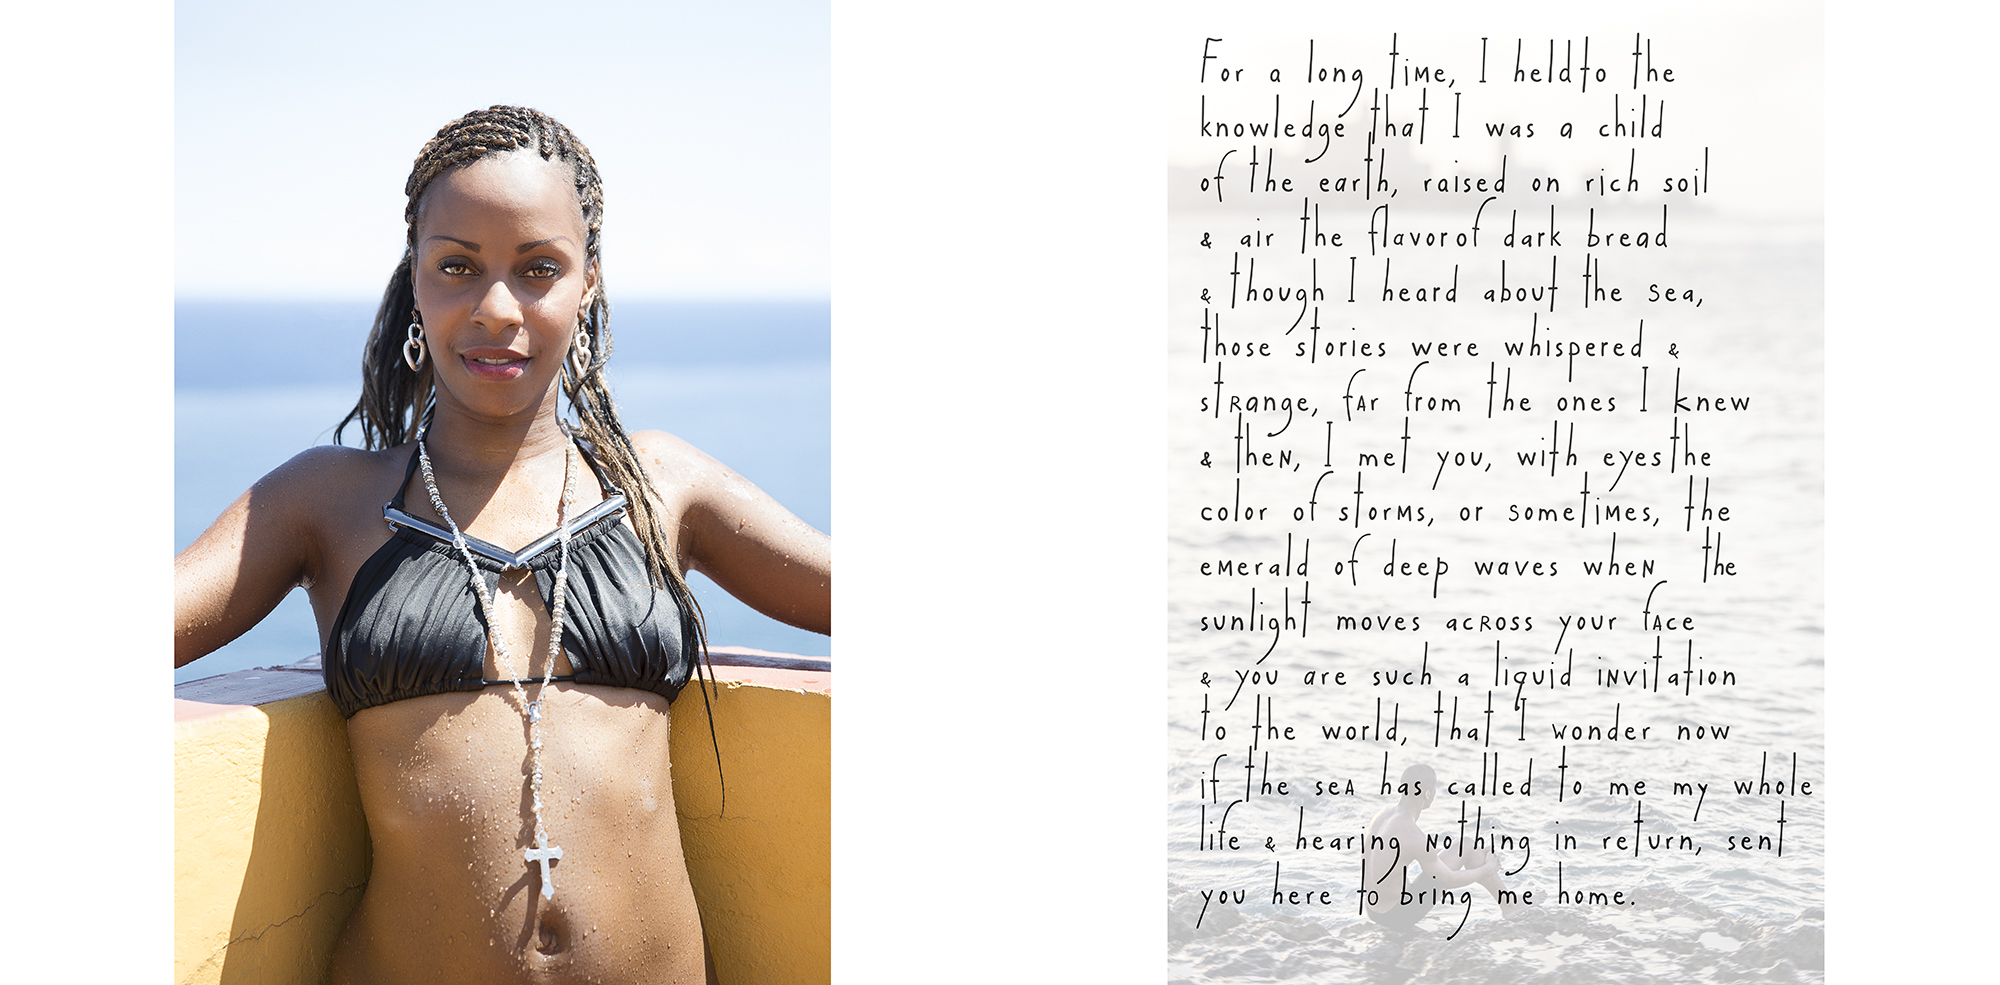 For a long time, I held to the
knowledge that I was a child
of the earth, raised on rich soil
& air the flavor of dark bread
& though I heard about the sea,
those stories were whispered &
strange, far from the ones I knew
& then, I met you, with eyes the
color of storms, or sometimes, the
emerald of deep waves when the
sunlight moves across your face
& you are such a liquid invitation
to the world, that I wonder now
if the sea has called to me my whole
life & hearing nothing in return, sent
you here to bring me home.